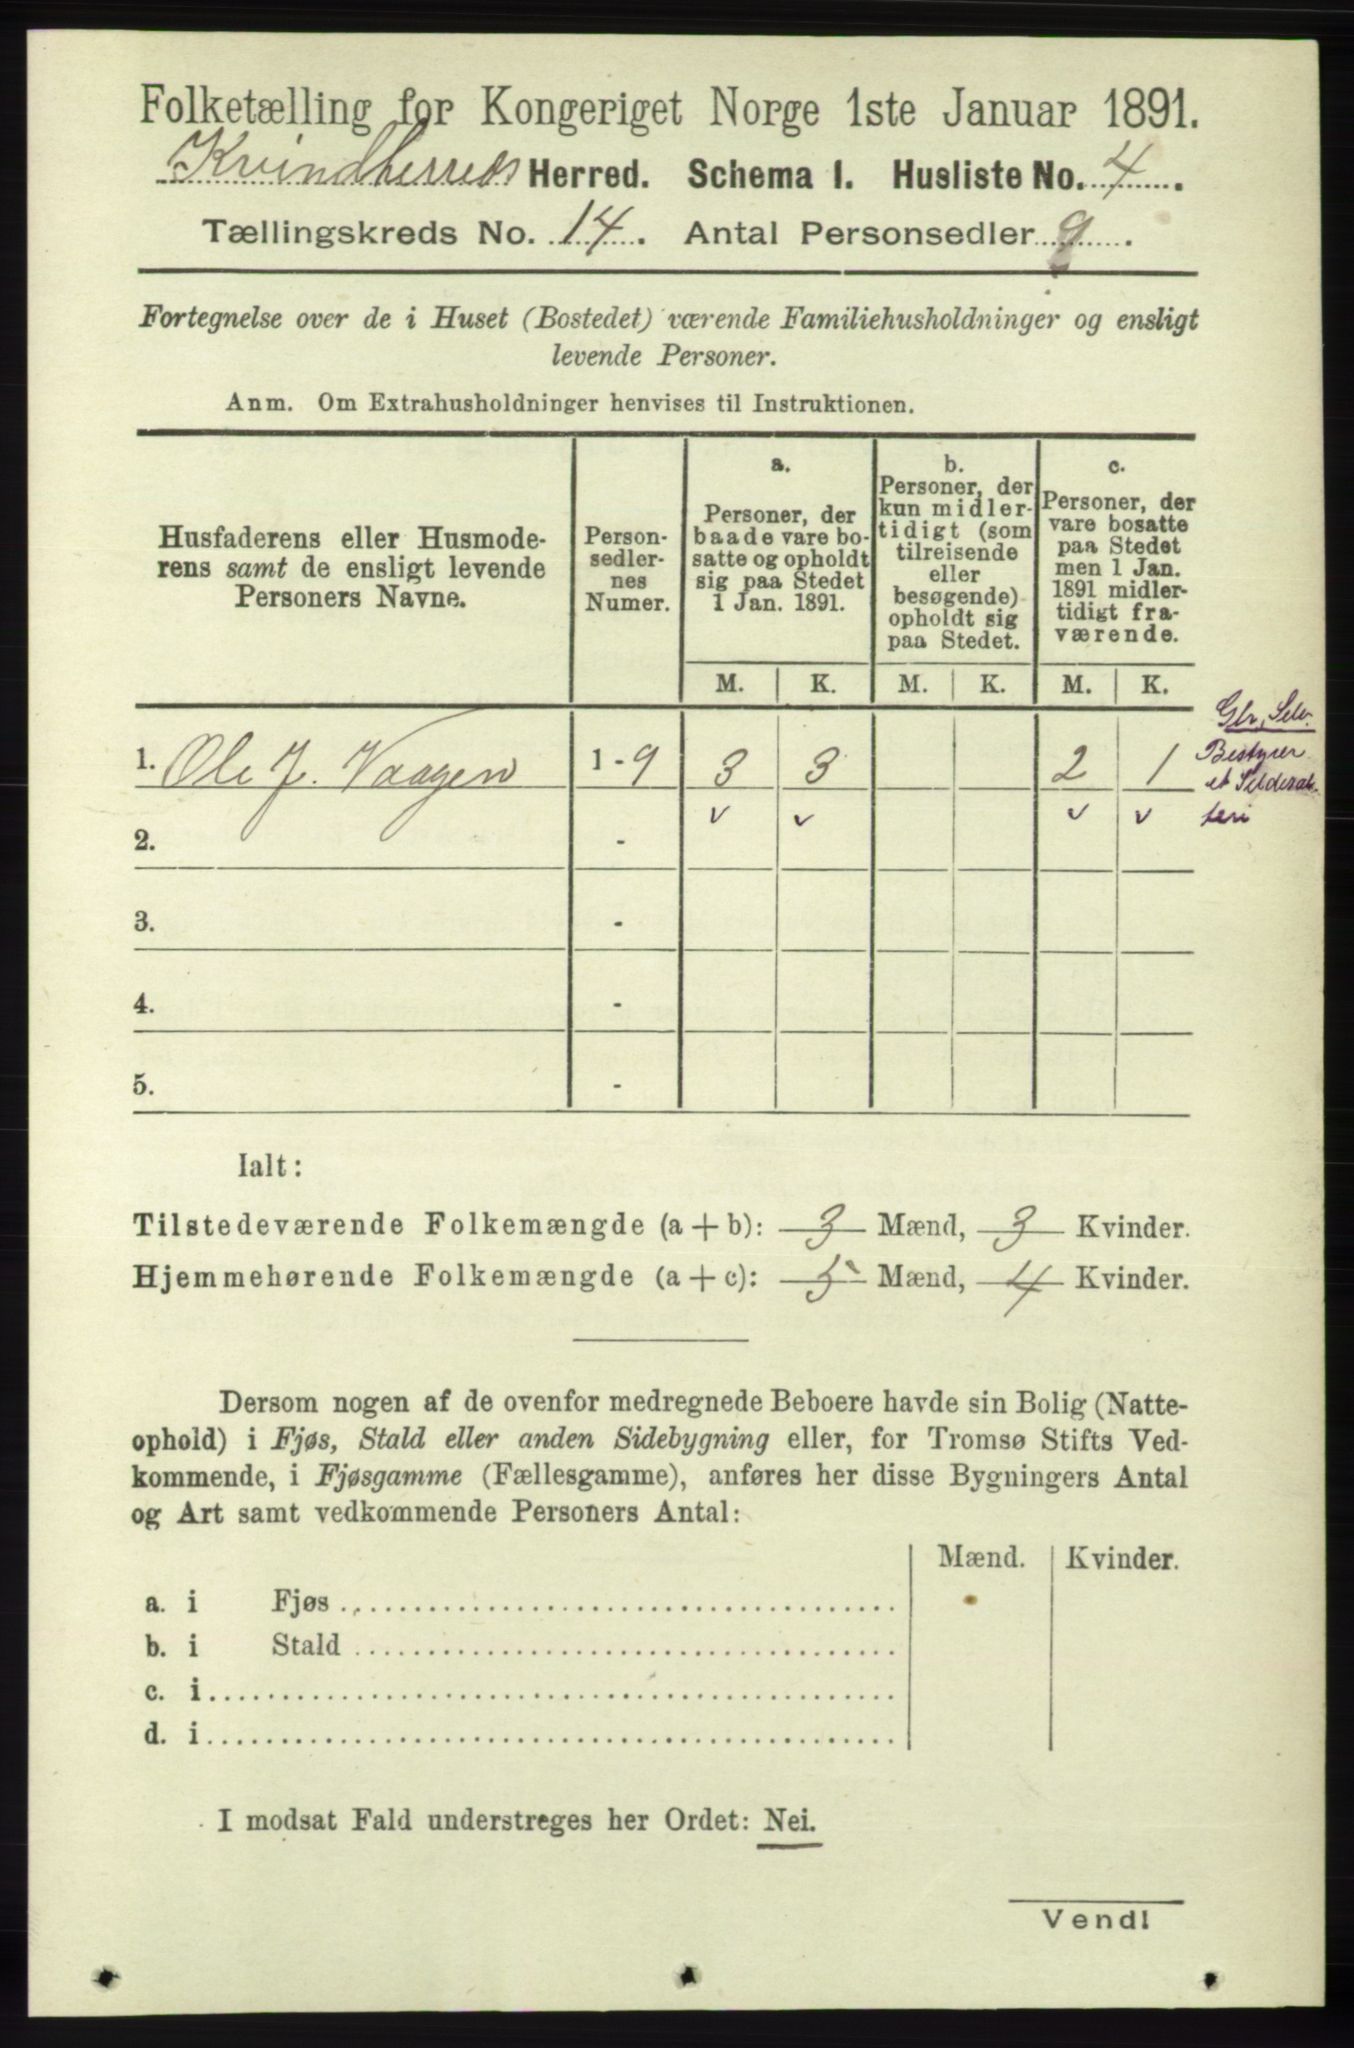 Folketælling for Kongeriget Norge 1ste Januar 1891.
Kvindherreds Herred. Schema 1. Husliste No. 4.
Tællingskreds No. 14. Antal Personsedler 9.
Fortegnelse over de i Huset (Bostedet) værende Familiehusholdninger og ensligt
levende Personer.
Anm. Om Extrahusholdninger henvises til Instruktionen.
Husfaderens eller Husmode-
rens samt de ensligt levende
Personers Navne.
Person-
sedler-
nes
Numer.
a.
Personer, der
baade vare bo-
satte og opholdt
sig paa Stedet
1 Jan. 1891.
b.
Personer, der
kun midler-
tidigt (som
tilreisende
eller
besøgende)
opholdt sig
paa Stedet.
c.
Personer, der
vare bosatte
paa Stedet
men 1 Jan.
1891 midler-
tidigt fra-
værende.
M. K. M. K. M. K.
1. Ole J. Vaagen 1 - 9 3 3 2 1
Bestyrer
et Sildesal-
teri
v v v v
2. -
3. -
4. -
5. -
Ialt:
Tilstedeværende Folkemængde (a + b): 3 Mænd, 3 Kvinder.
Hjemmehørende Folkemængde (a + c): 5 Mænd, 4 Kvinder.
Dersom nogen af de ovenfor medregnede Beboere havde sin Bolig (Natte-
ophold) i Fjøs, Stald eller anden Sidebygning eller, for Tromsø Stifts Ved-
kommende, i Fjøsgamme (Fællesgamme), anføres her disse Bygningers Antal
og Art samt vedkommende Personers Antal:
Mænd. Kvinder.
a. i Fjøs
b. i Stald
c. i
d. i
I modsat Fald understreges her Ordet: Nei.
Vend!